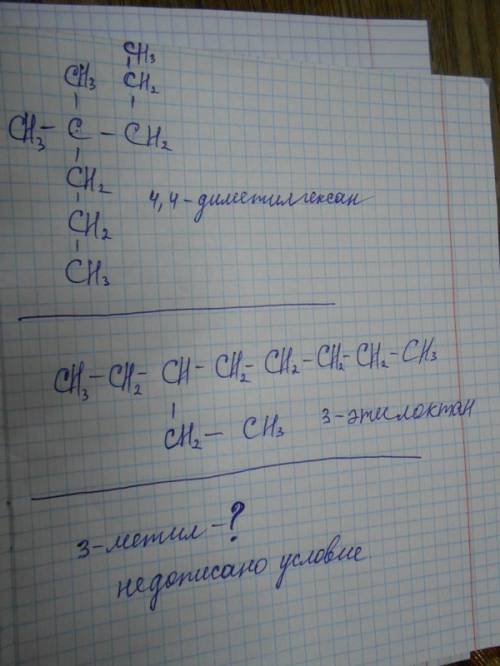 CH3
CH3 CH2
CH3 – C – CH2
CH2
CH2
CH3
4,4-диметилгексан
CH3 – CH2 – CH – CH2 – CH2 – CH2 – CH2 – CH3
CH2 – CH3
3-этилоктан
3-метил – ?
недописано условие